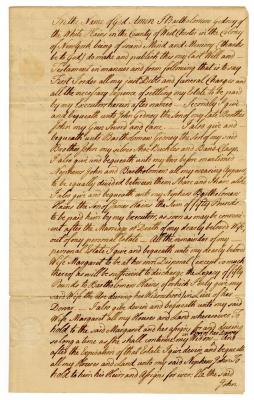 In the Name of God Amen I Bartholomew Gedney of
the White Plains in the County of West Chester in the Colony
of New York being of sound Mind and Memory (thanks
be to God) do make and publish this my Last Will and
Testament in manner and form following that is to say
First I order all my just Debts and funeral Charges and
all the necessary Expence of settling my Estate to be paid
by my Executor herein after named Secondly I give
and bequeath unto John Gedney the Son of my late Brother
John my Gun Sword and Cane I also give and
bequeath unto Bartholomew Gedney the Son of my said
Brother John my silver Shoe Buckles and
I also give and bequeath unto my two before mentioned
Nephews John and Bartholomew all my wearing Apparel
to be equally divided between them Share and Share alike
I also give and bequeath unto my Nephew Bartholomew
Haines the Son of James Haines the Sum of fifty Pounds
to be paid him by my Executor as soon as may be convenient
after the Marriage or Death of my dearly beloved Wife
out of my personal Estate All the remainder of my
personal Estate I give and bequeath unto my dearly beloved
Wife Margaret to be at her own Disposal (except so much
thereof as will be sufficient to discharge the Legacy of fifty
Pounds to Bartholomew Haines) which I only give my
said Wife the Use during her Widowhood in Lieu of her
Dower I also give devise and bequeath unto my said
Wife Margaret all my Houses and Land wheresoever To
hold to the said Margaret and her assigns for and during
so long a time as she shall continue my Widow And
after the expiration of that Estate I give devise and bequeath
all my Houses and Land unto my said Nephew John To
hold to him his Heirs and Assigns for ever He the said
John